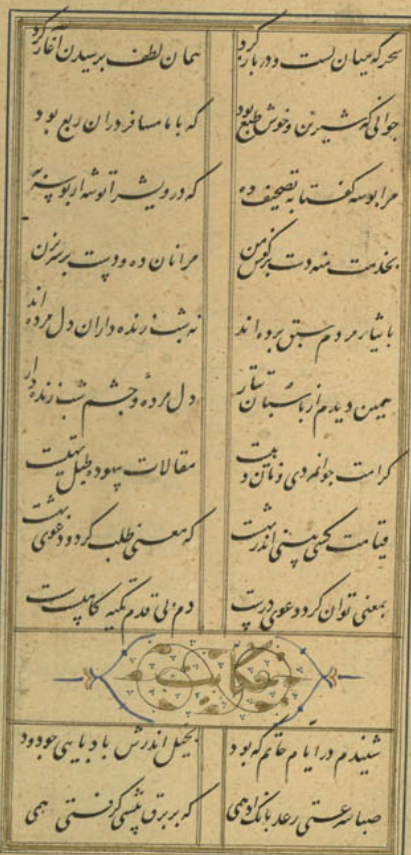 سحرگه میان بست و در باز کرد همان لطف پرسیدن آغاز کرد
جوانی که شیرین و خوش طبع بود که با ما مسافر در آن ربع بود
مرا بوسه گفتا به تصحیف ده که درویش را توشه از بوسه به
بخدمت منه دست بر کفش من مرا نان ده و دست بر سر بزن
بایثار مردم سبق برده اند نه شب زنده داران دل مرده اند
همین دیدم از پاسبان تتار دل مرده و چشم شب زنده دار
کرامت جوانمردی و نان دهیست مقالات بیهوده طبل تهیست
قیامت کسی بینی اندر بهشت که معنی طلب کرد و دعوی بهشت
بمعنی توان کرد دعوی درست دم بی قدم تکیه گاهیست سست
حکایت
شنیدم در ایام حاتم که بود بخیل اندرش بادپایی چو دود
صبا سرعتی رعد بانگ ادهمی که بر برق پیشی گرفتی همی